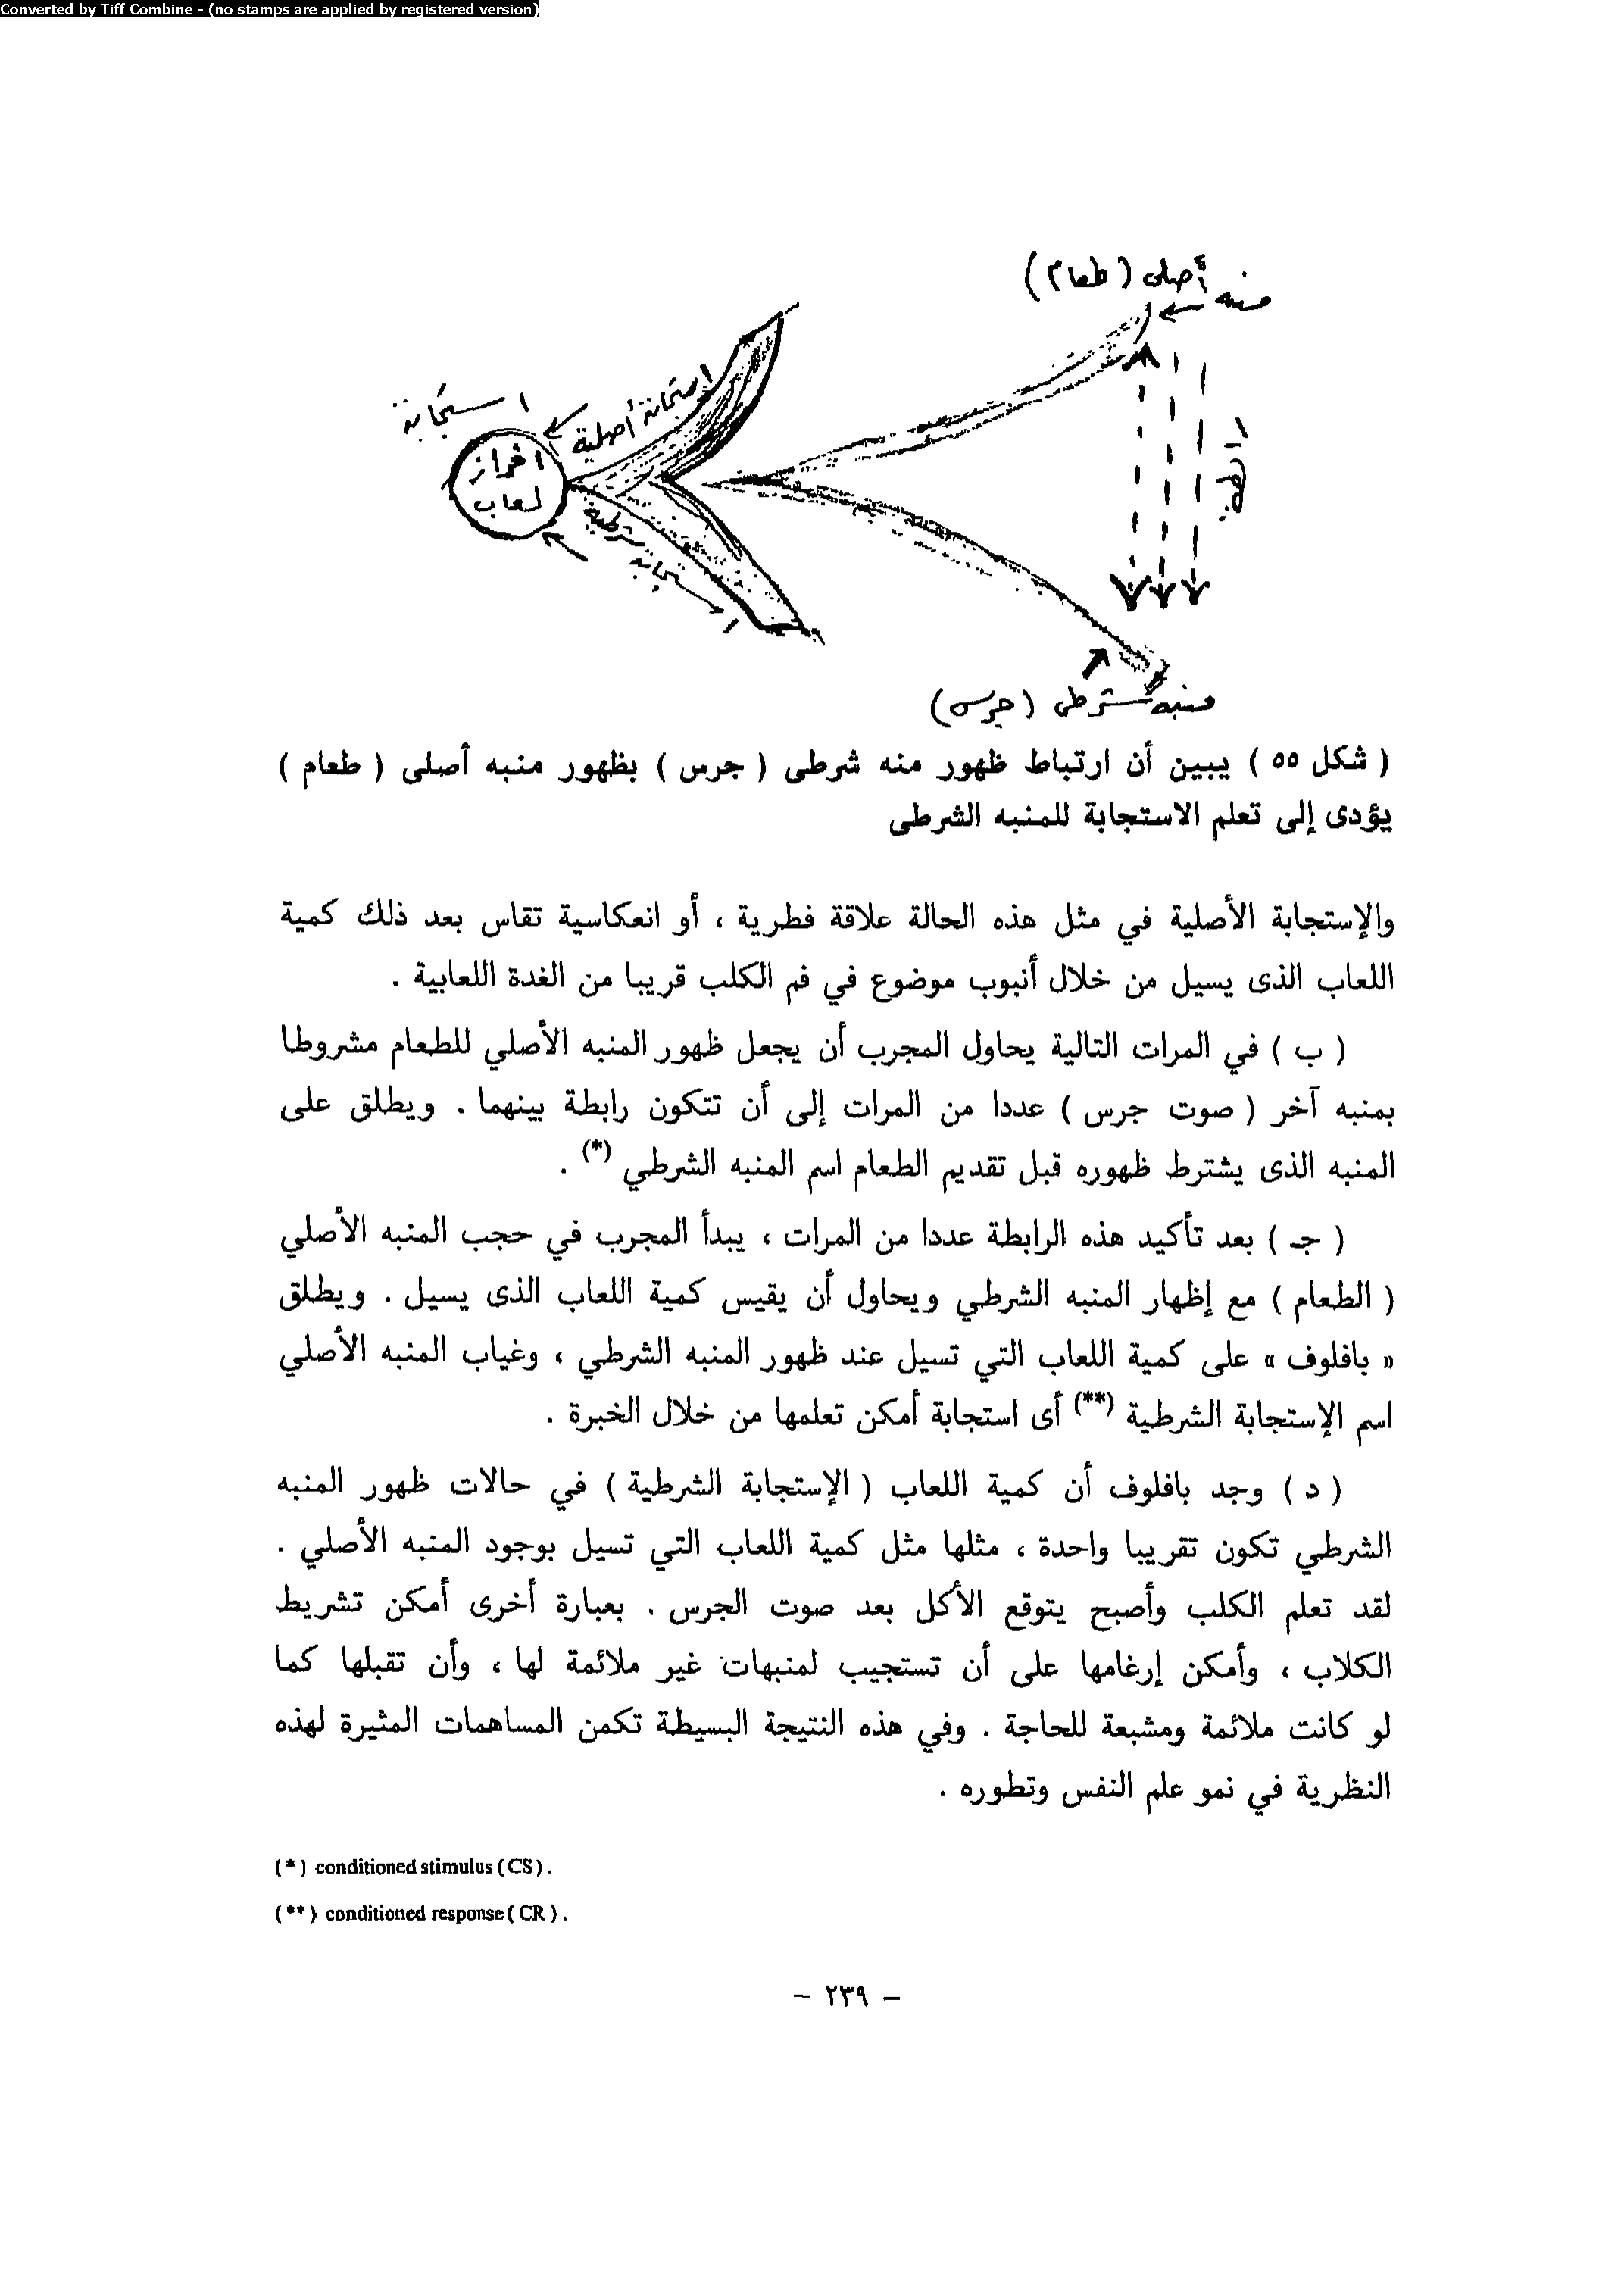 Converted by Tiff Combine - (no stamps are applied by registered version)
منبه أصلى (طعام)
استجابة أصلية
استجابة
افراز
لعاب
استجابة شرطية
منبه شرطى (جرس)
( شكل ٥٥ ) يبين أن ارتباط ظهور منه شرطى ( جرس ) بظهور منبه أصلى ( طعام )
يؤدى إلى تعلم الاستجابة للمنبه الشرطى
والإستجابة الأصلية في مثل هذه الحالة علاقة فطرية ، أو انعكاسية تقاس بعد ذلك كمية
اللعاب الذى يسيل من خلال أنبوب موضوع في فم الكلب قريبا من الغدة اللعابية .
( ب ) في المرات التالية يحاول المجرب أن يجعل ظهور المنبه الأصلي للطعام مشروطا
بمنبه آخر ( صوت جرس ) عددا من المرات إلى أن تتكون رابطة بينهما . ويطلق على
المنبه الذى يشترط ظهوره قبل تقديم الطعام اسم المنبه الشرطي (*) .
( جـ ) بعد تأكيد هذه الرابطة عددا من المرات ، يبدأ المجرب في حجب المنبه الأصلي
( الطعام ) مع إظهار المنبه الشرطي ويحاول أن يقيس كمية اللعاب الذى يسيل . ويطلق
« بافلوف » على كمية اللعاب التي تسيل عند ظهور المنبه الشرطي ، وغياب المنبه الأصلي
اسم الإستجابة الشرطية (**) أى استجابة أمكن تعلمها من خلال الخبرة .
( د ) وجد بافلوف أن كمية اللعاب ( الإستجابة الشرطية ) في حالات ظهور المنبه
الشرطي تكون تقريبا واحدة ، مثلها مثل كمية اللعاب التي تسيل بوجود المنبه الأصلي .
لقد تعلم الكلب وأصبح يتوقع الأكل بعد صوت الجرس . بعبارة أخرى أمكن تشريط
الكلاب ، وأمكن إرغامها على أن تستجيب لمنبهات غير ملائمة لها ، وأن تقبلها كما
لو كانت ملائمة ومشبعة للحاجة . وفي هذه النتيجة البسيطة تكمن المساهمات المثيرة لهذه
النظرية في نمو علم النفس وتطوره .
(*) conditioned stimulus (CS) .
(**) conditioned response (CR) .
– ٢٣٩ –